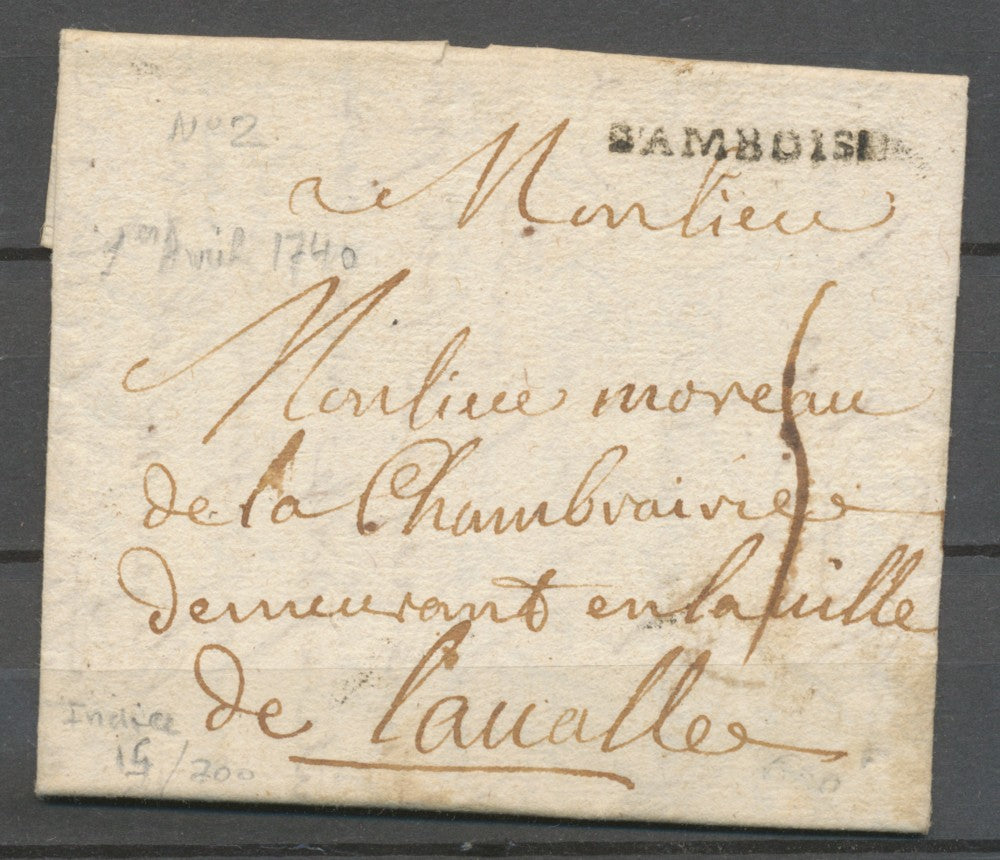 B'AMBOISE
No 2
Monsieur
1er Avril 1740
Monsieur moreau
de la Chambrairie
demeurant en la uille
de laualle
Indice
15/200